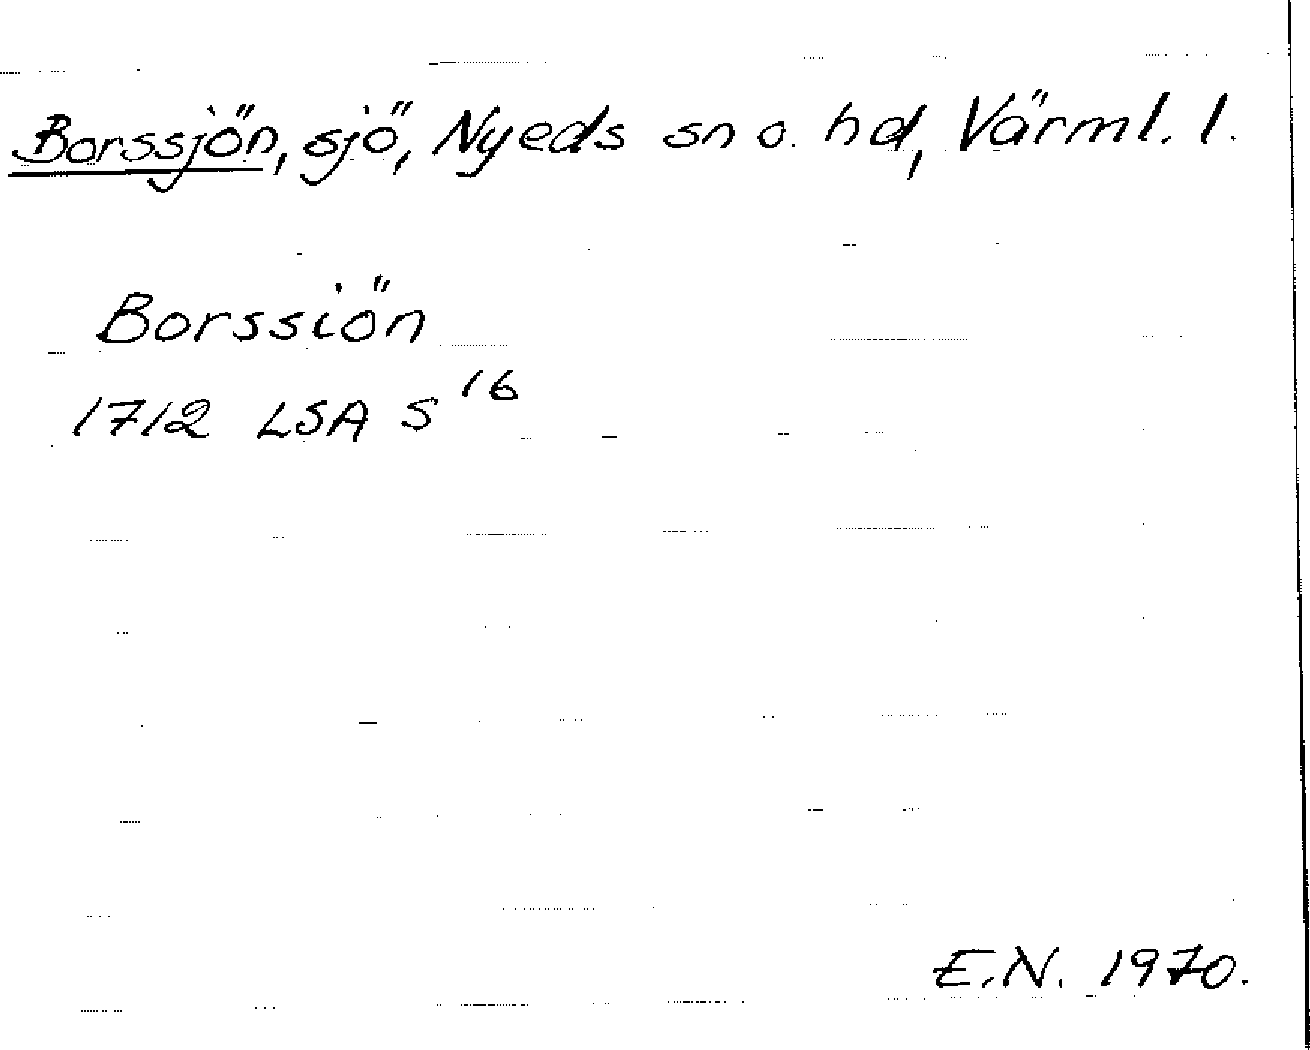 Borssjön, sjö, Nyeds sn o. hd, Värml. l.
Borssiön
1712 LSA S 16
E.N. 1970.